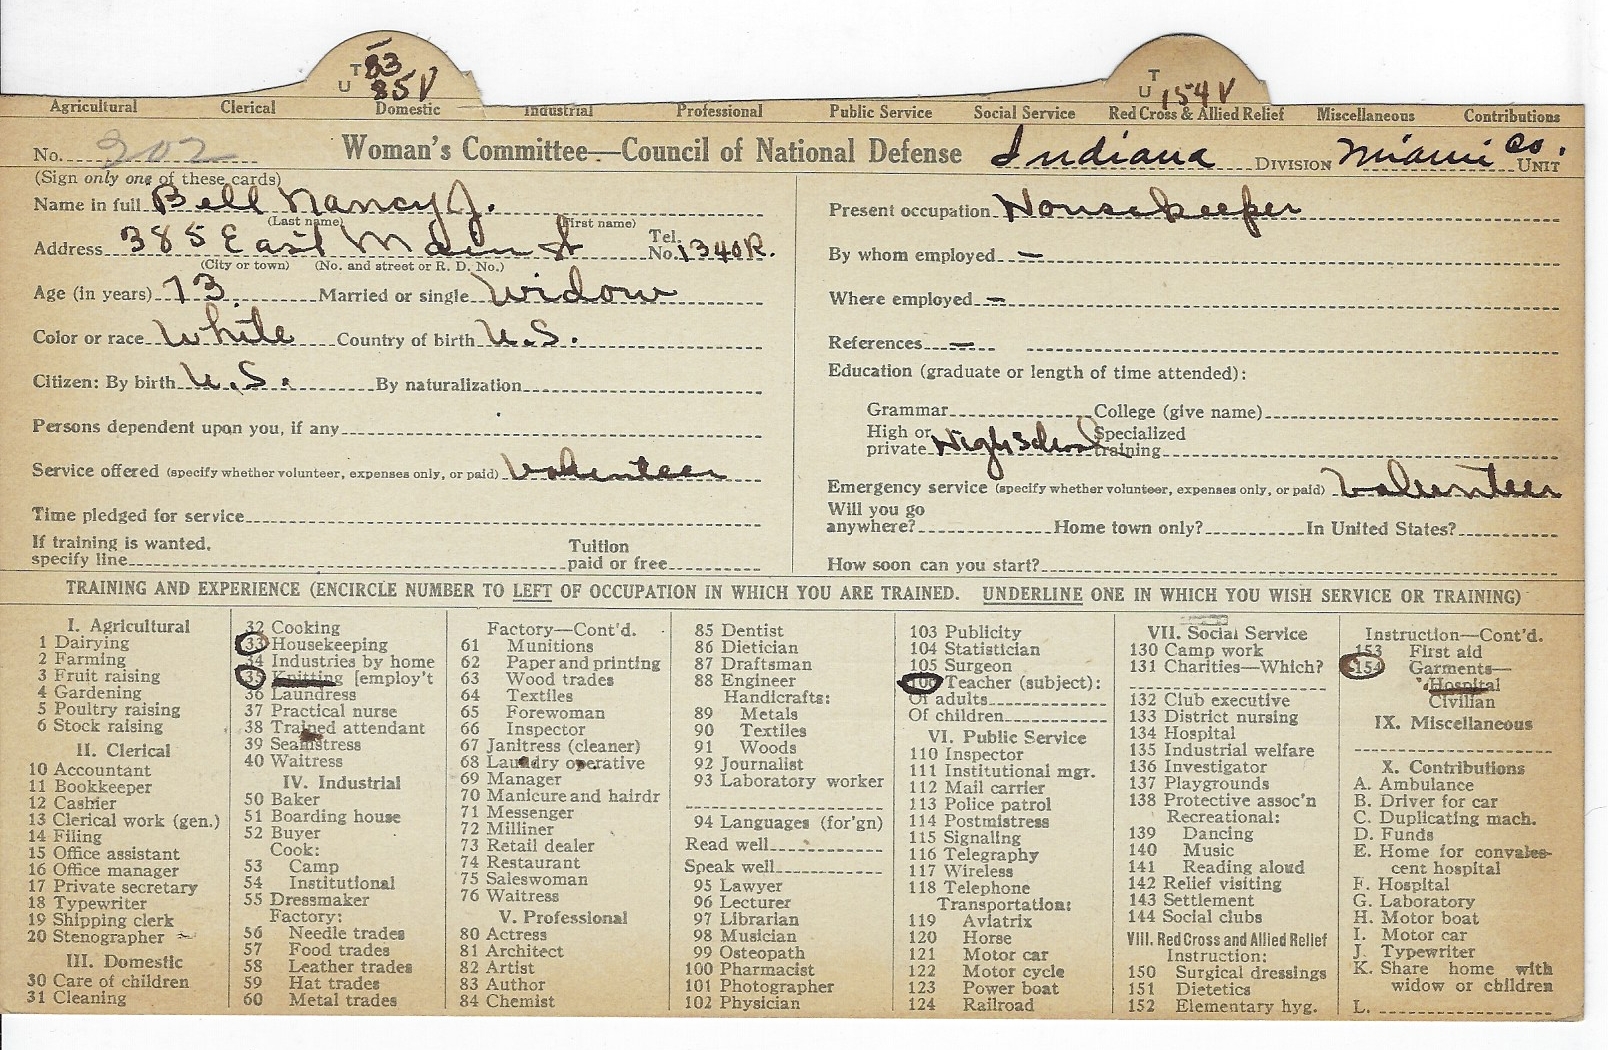 T 83
U 85V
T
U 154V
Agricultural Clerical Domestic Industrial Professional Public Service Social Service Red Cross & Allied Relief Miscellaneous Contributions
No. 202 Woman's Committee—Council of National Defense Indiana DIVISION Miami Co. UNIT
(Sign only one of these cards)
Name in full Bell Nancy J.
(Last name) (First name)
Address 385 East Main St Tel. No. 1340R.
(City or town) (No. and street or R. D. No.)
Age (in years) 73 Married or single Widow
Color or race White Country of birth U.S.
Citizen: By birth U.S. By naturalization
Persons dependent upon you, if any
Service offered (specify whether volunteer, expenses only, or paid) Volunteer
Time pledged for service
If training is wanted, Tuition
specify line paid or free
Present occupation Housekeeper
By whom employed —
Where employed —
References —
Education (graduate or length of time attended):
Grammar College (give name)
High or Specialized
private High School training
Emergency service (specify whether volunteer, expenses only, or paid) Volunteer
Will you go
anywhere? Home town only? In United States?
How soon can you start?
TRAINING AND EXPERIENCE (ENCIRCLE NUMBER TO LEFT OF OCCUPATION IN WHICH YOU ARE TRAINED. UNDERLINE ONE IN WHICH YOU WISH SERVICE OR TRAINING)
I. Agricultural
1 Dairying
2 Farming
3 Fruit raising
4 Gardening
5 Poultry raising
6 Stock raising
II. Clerical
10 Accountant
11 Bookkeeper
12 Cashier
13 Clerical work (gen.)
14 Filing
15 Office assistant
16 Office manager
17 Private secretary
18 Typewriter
19 Shipping clerk
20 Stenographer
III. Domestic
30 Care of children
31 Cleaning
32 Cooking
33 Housekeeping
34 Industries by home
35 Knitting [employ't
36 Laundress
37 Practical nurse
38 Trained attendant
39 Seamstress
40 Waitress
IV. Industrial
50 Baker
51 Boarding house
52 Buyer
Cook:
53 Camp
54 Institutional
55 Dressmaker
Factory:
56 Needle trades
57 Food trades
58 Leather trades
59 Hat trades
60 Metal trades
Factory—Cont'd.
61 Munitions
62 Paper and printing
63 Wood trades
64 Textiles
65 Forewoman
66 Inspector
67 Janitress (cleaner)
68 Laundry operative
69 Manager
70 Manicure and hairdr
71 Messenger
72 Milliner
73 Retail dealer
74 Restaurant
75 Saleswoman
76 Waitress
V. Professional
80 Actress
81 Architect
82 Artist
83 Author
84 Chemist
85 Dentist
86 Dietician
87 Draftsman
88 Engineer
Handicrafts:
89 Metals
90 Textiles
91 Woods
92 Journalist
93 Laboratory worker
94 Languages (for'gn)
Read well
Speak well
95 Lawyer
96 Lecturer
97 Librarian
98 Musician
99 Osteopath
100 Pharmacist
101 Photographer
102 Physician
103 Publicity
104 Statistician
105 Surgeon
106 Teacher (subject):
Of adults
Of children
VI. Public Service
110 Inspector
111 Institutional mgr.
112 Mail carrier
113 Police patrol
114 Postmistress
115 Signaling
116 Telegraphy
117 Wireless
118 Telephone
Transportation:
119 Aviatrix
120 Horse
121 Motor car
122 Motor cycle
123 Power boat
124 Railroad
VII. Social Service
130 Camp work
131 Charities—Which?
132 Club executive
133 District nursing
134 Hospital
135 Industrial welfare
136 Investigator
137 Playgrounds
138 Protective assoc'n
Recreational:
139 Dancing
140 Music
141 Reading aloud
142 Relief visiting
143 Settlement
144 Social clubs
VIII. Red Cross and Allied Relief
Instruction:
150 Surgical dressings
151 Dietetics
152 Elementary hyg.
Instruction—Cont'd.
153 First aid
154 Garments—
Hospital
Civilian
IX. Miscellaneous
X. Contributions
A. Ambulance
B. Driver for car
C. Duplicating mach.
D. Funds
E. Home for convales-
cent hospital
F. Hospital
G. Laboratory
H. Motor boat
I. Motor car
J. Typewriter
K. Share home with
widow or children
L.